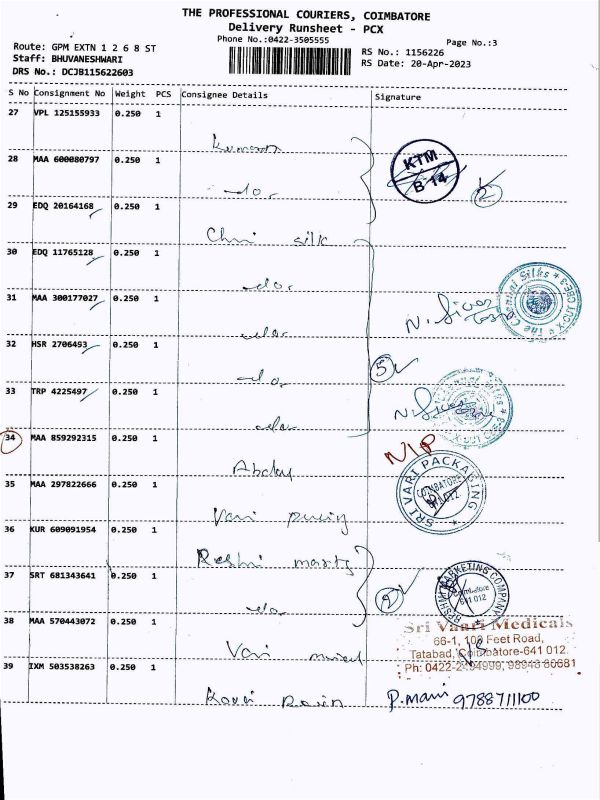 THE PROFESSIONAL COURIERS, COIMBATORE
Delivery Runsheet - PCX
Phone No.:0422-3505555
Page No.:3
Route: GPM EXTN 1 2 6 8 ST
Staff: BHUVANESHWARI
DRS No.: DCJB115622603
RS No.: 1156226
RS Date: 20-Apr-2023
S No Consignment No Weight PCS Consignee Details Signature
27 VPL 125155933 0.250 1
28 MAA 600080797 0.250 1
KTM
B 14
2
-do-
29 EDQ 20164168 0.250 1
silk
30 EDQ 11765128 0.250 1
-do-
31 MAA 300177027 0.250 1
-do-
N. Sivas
32 HSR 2706493 0.250 1
-do-
5
33 TRP 4225497 0.250 1
-do-
34 MAA 859292315 0.250 1
N/P
35 MAA 297822666 0.250 1
SRI VARI PACKAGING
COIMBATORE
Vari
36 KUR 609091954 0.250 1
Reshi
37 SRT 681343641 0.250 1
2
MARKETING COMPANY
Coimbatore
641 012
-do-
38 MAA 570443072 0.250 1
Sri Vaari Medicals
66-1, 100 Feet Road,
Tatabad, Coimbatore-641 012.
Vari
39 IXM 503538263 0.250 1
P. Mani 9788711100